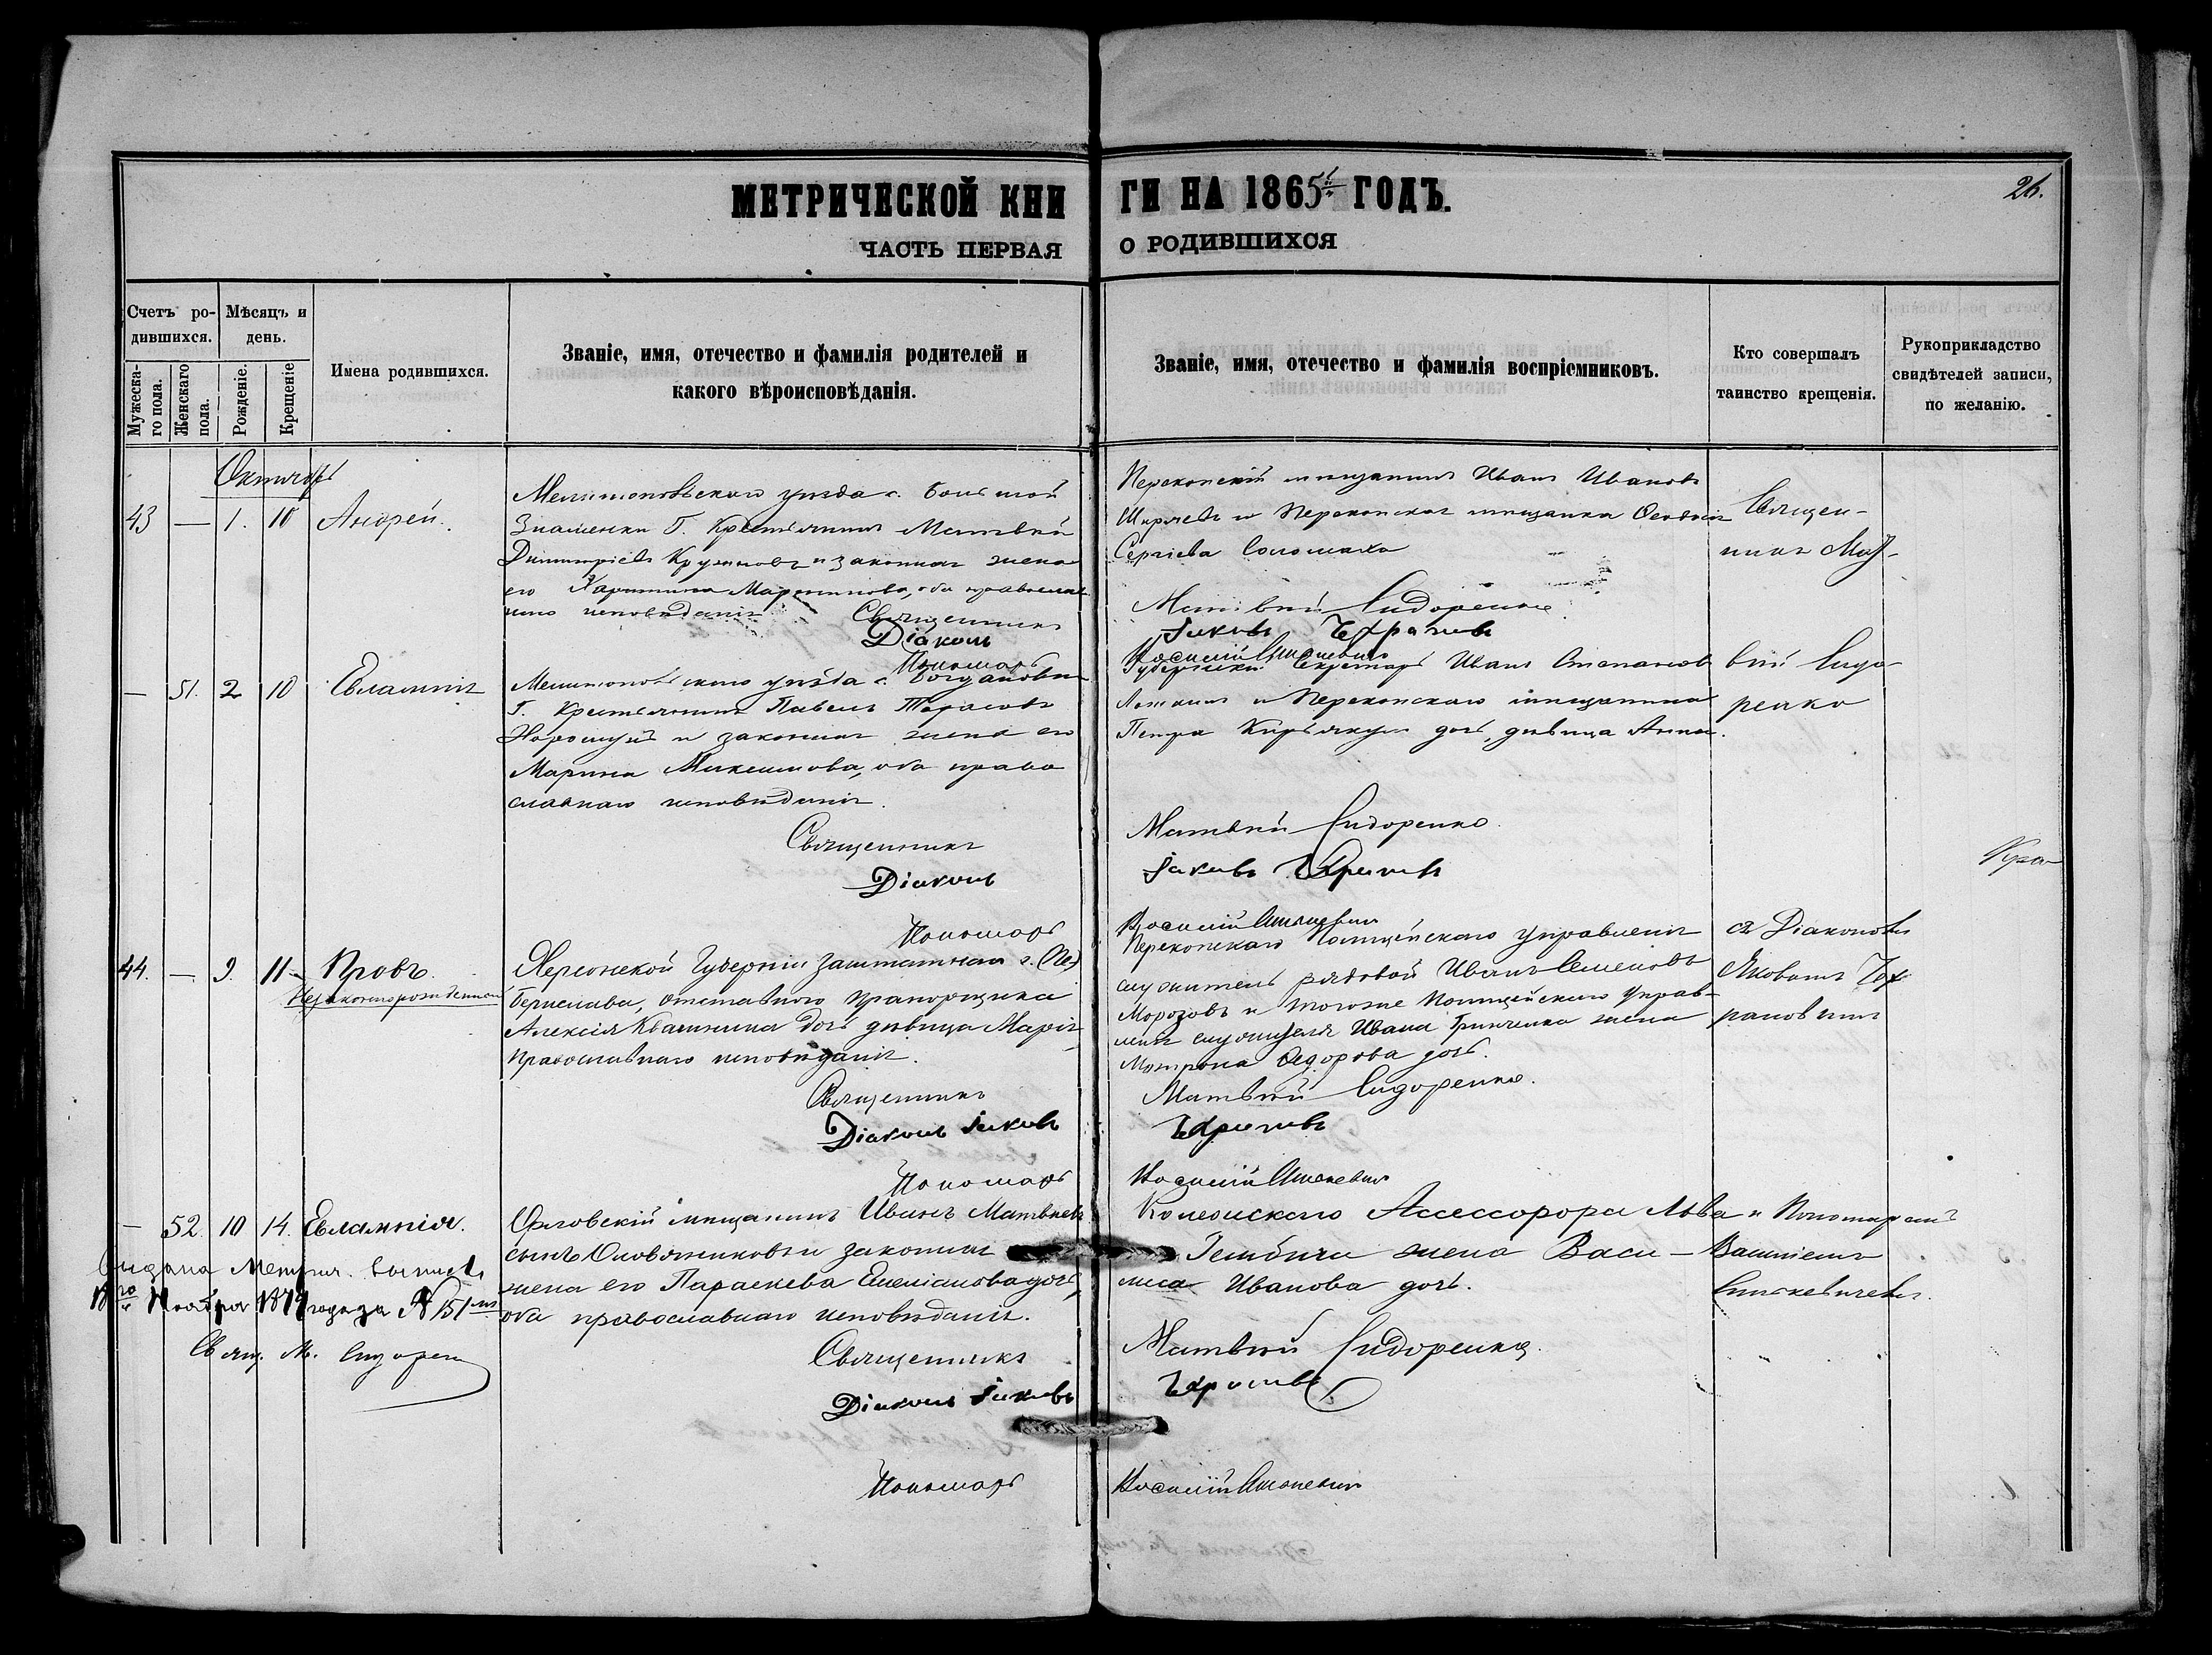 МЕТРИЧЕСКОЙ КНИГИ НА 1865й ГОДЪ.
26.
ЧАСТЬ ПЕРВАЯ О РОДИВШИХСЯ
Счетъ родившихся.
Мужескаго пола.
Женскаго пола.
Мѣсяцъ и день.
Рожденіе.
Крещеніе
Имена родившихся.
Званіе, имя, отечество и фамилія родителей и
какого вѣроисповѣданія.
Званіе, имя, отечество и фамилія воспріемниковъ.
Кто совершалъ
таинство крещенія.
Рукоприкладство
свидѣтелей записи,
по желанію.
Октябрь
43 — 1. 10 Андрей.
Мелитопольскаго уѣзда с. Большой
Знаменки Г. Крестьянинъ Матвѣй
Димитріевъ и законная жена
его Харитина, оба православ
наго исповѣданія
Священникъ
Діаконъ
Пономарь
Перекопскій мѣщанинъ Иванъ Ивановъ
и Перекопская мѣщанка Феодосія
Сергіева
Матвѣй Сидоренко
Іаковъ Чехрановъ
Василій Синькевичъ
Священ-
никъ Мат-
— 51. 2 10 Евлампія
Мелитопольскаго уѣзда с. Богдановки
Г. Крестьянинъ Павелъ Тарасовъ
и законная жена его
Марина Максимова, оба право
славнаго исповѣданія.
Священникъ
Діаконъ
Пономарь
Губернскій Секретарь Иванъ Степановъ
и Перекопскаго мѣщанина
Петра дочь, дѣвица Анна.
Матвѣй Сидоренко
Іаковъ Чехрановъ
Василій Синькевичъ
вѣй Сидо-
ренко
44. — 9. 11 Провъ.
Незаконнорожденный
Херсонской Губерніи заштатнаго г.
Берислава, отставного Прапорщика
Алексія Квашнина дочь дѣвица Марія
Православнаго исповѣданія.
Священникъ
Діаконъ Іаковъ
Пономарь
Перекопскаго Полицейскаго Управленія
служитель рядовой Иванъ Семеновъ
Морозовъ и тогоже Полицейскаго Управ-
ленія служителя Ивана Гринченка жена
Матрона Федорова дочь.
Матвѣй Сидоренко.
Чехрановъ
Василій Синькевичъ
съ Діакономъ
Яковомъ Чех
рановымъ
— 52. 10 14. Евлампія.
Орловскій мѣщанинъ Иванъ Матвѣевъ
сынъ Оловяниковъ и законная
жена его Параскева Емеліанова дочь,
оба православнаго исповѣданія.
Священникъ
Діаконъ Іаковъ
Пономарь
Колежскаго Ассессорора Льва
Гембичи жена Васи-
лиса Иванова дочь.
Матвѣй Сидоренко.
Чехрановъ
Василій Синькевичъ
и Пономаремъ
Василіемъ
Синькевичемъ.
Выдана Метрич. выпись
Ноября года за № 151
Свящ. М. Сидорен